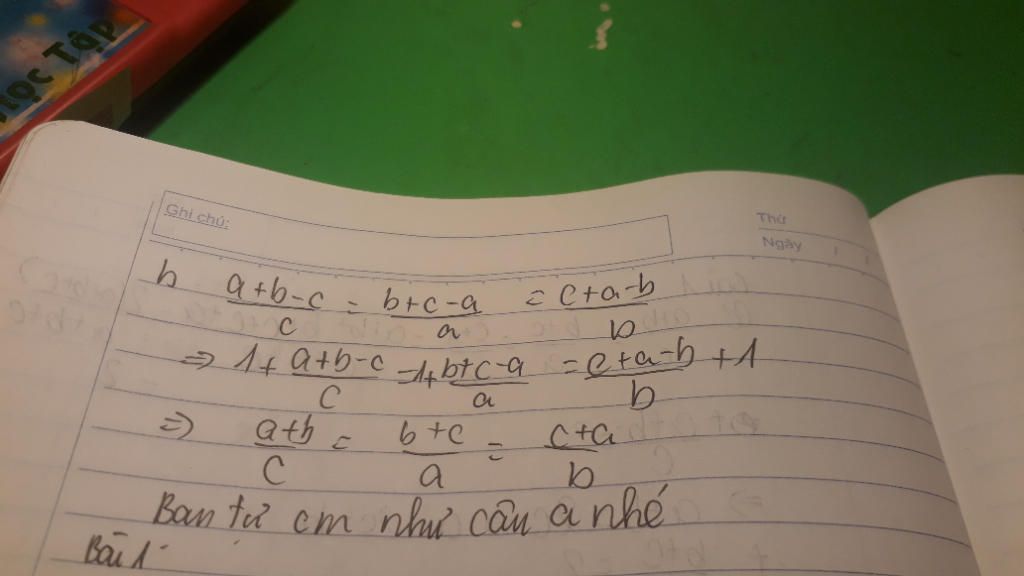 HỌC TẬP
Ghi chú:
Thứ
Ngày
b a+b-c/c = b+c-a/a = c+a-b/b
=> 1+ a+b-c/c = 1+ b+c-a/a = c+a-b/b +1
=> a+b/c = b+c/a = c+a/b
Ban tự cm như câu a nhé
Bài 1: